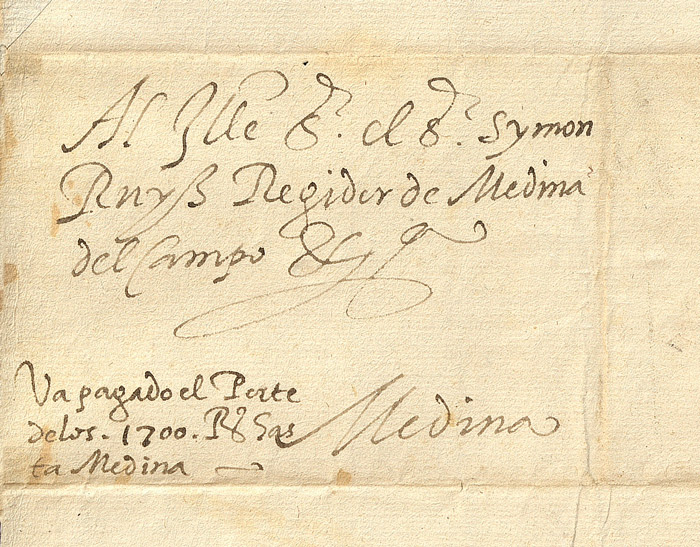 Al Ille S.r el S.r Symon
Ruyß Regidor de Medina
del Campo &c
Va pagado el Porte
delos. 1700. Rs has
ta Medina
Medina